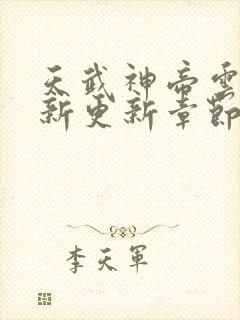 天武神帝雲
新更新章節
李天軍